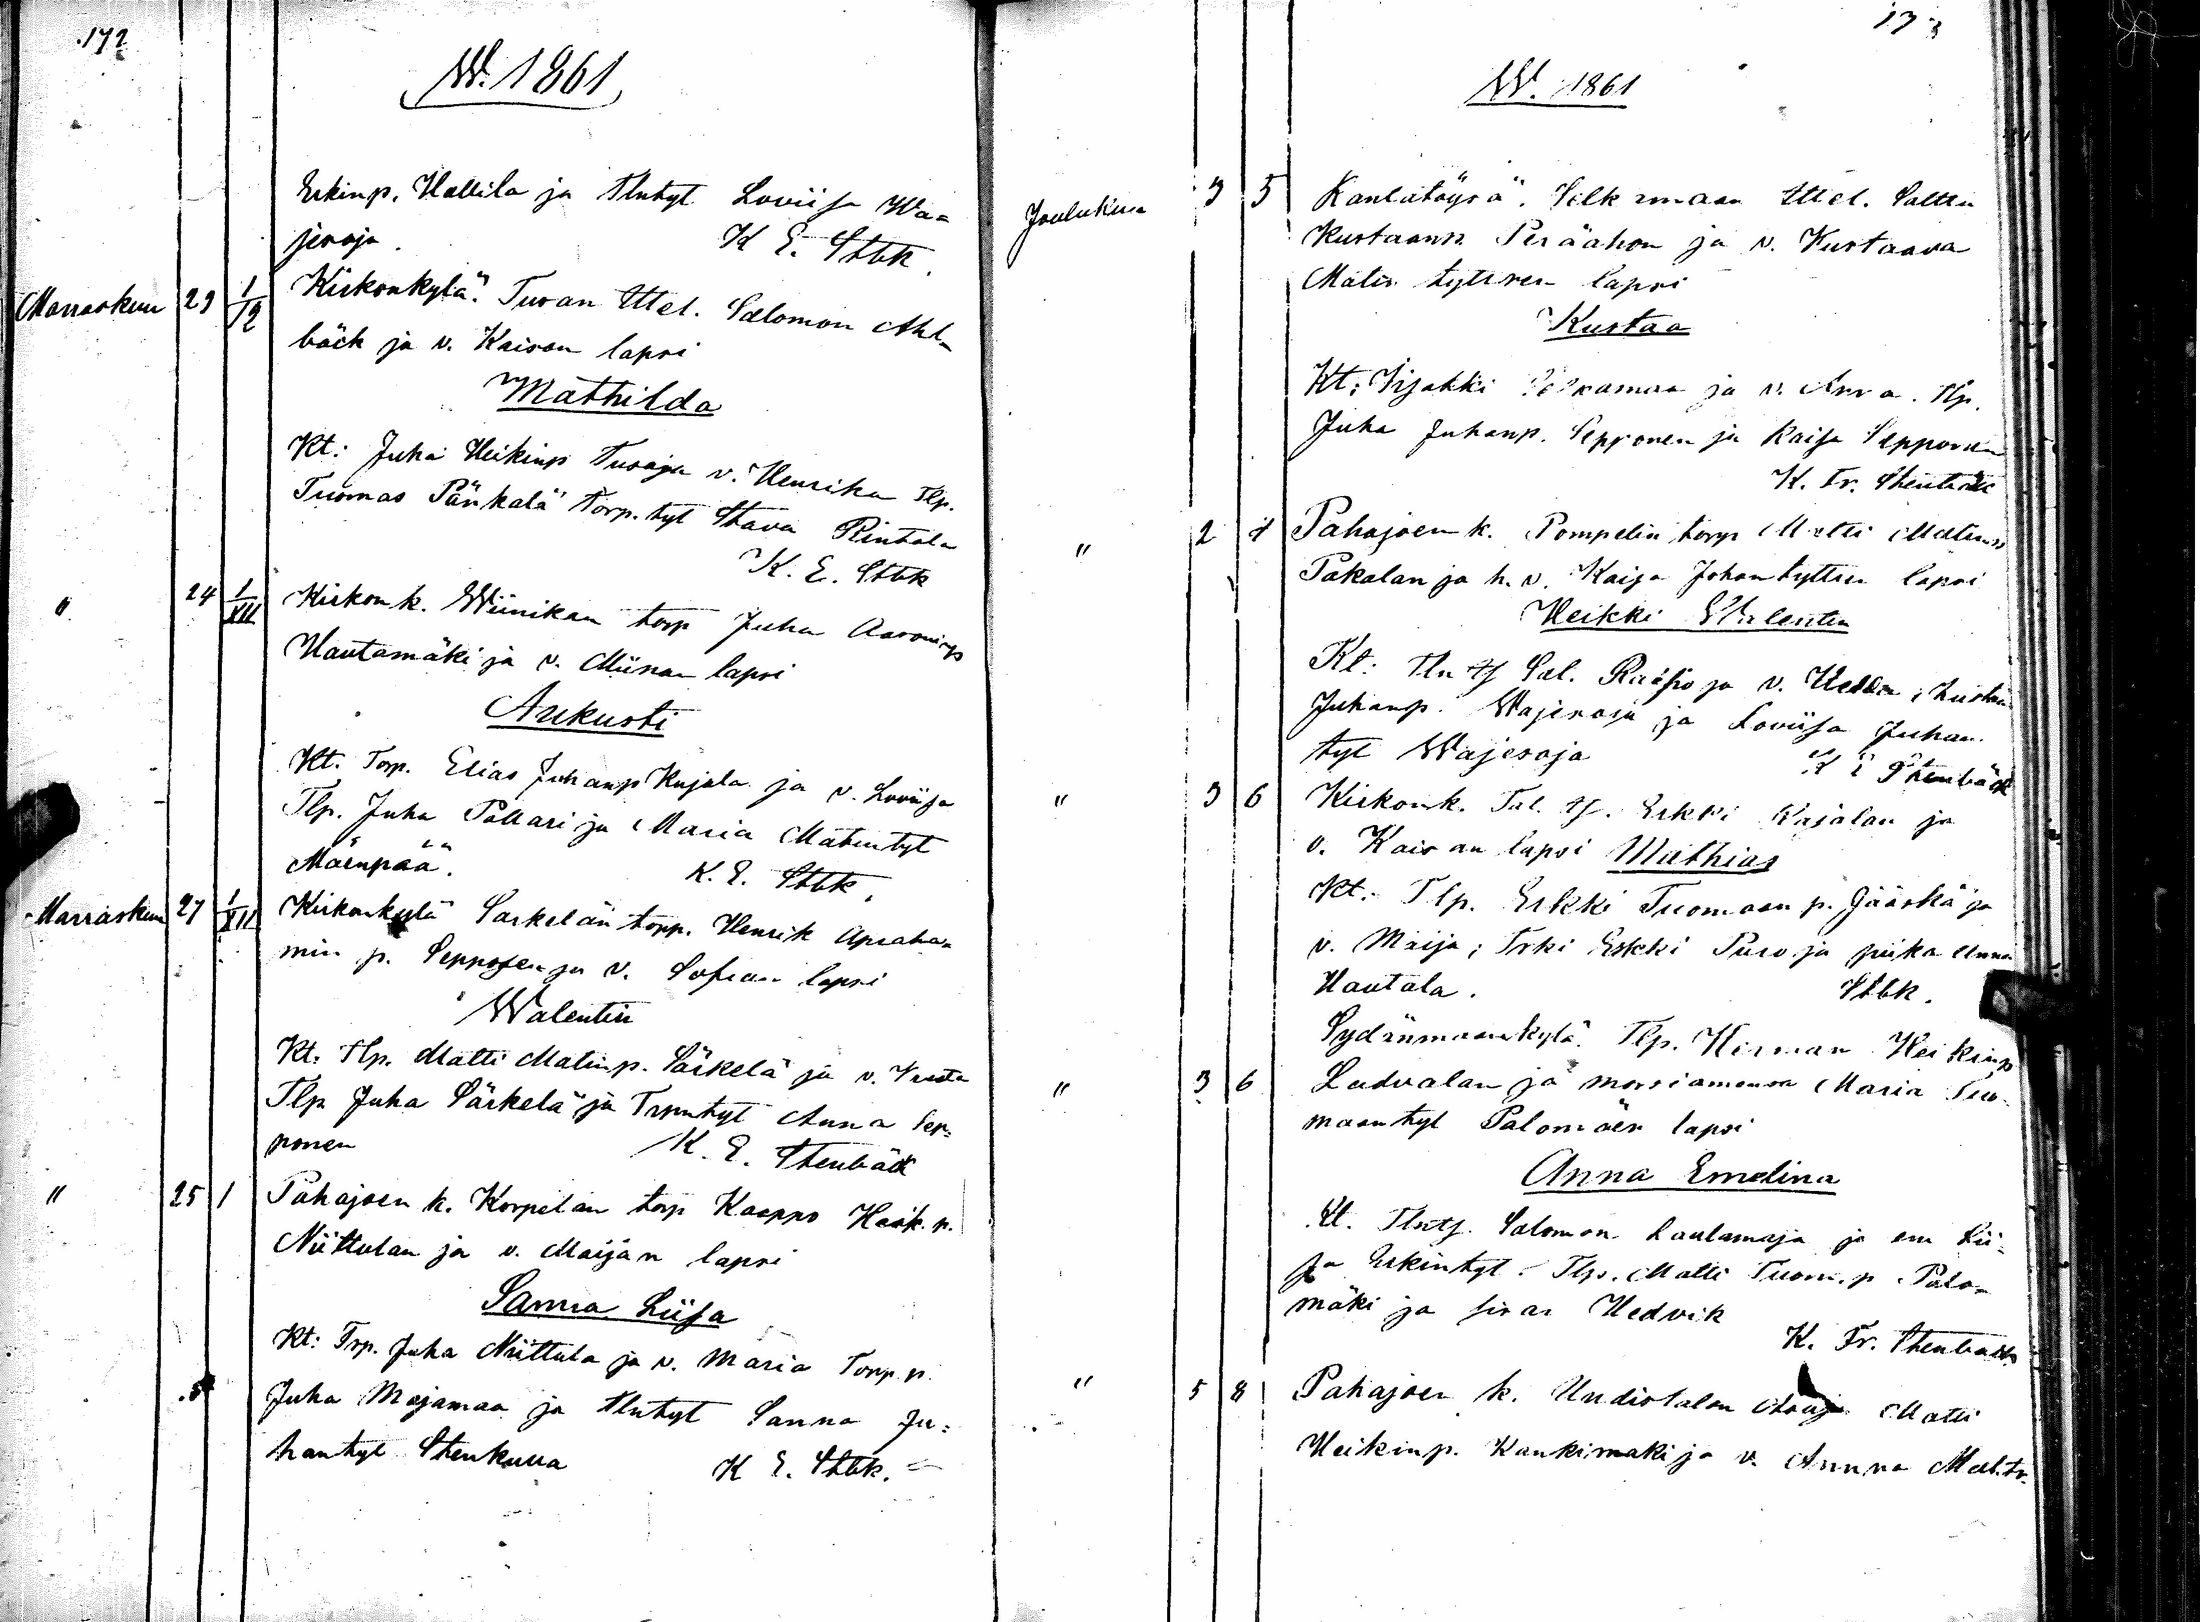 172
W. 1861
Erkinp. Hallila ja tlntyt Loviisa Wa=
jeroja. K E. Stbk.
Marraskuu 29 1/12 Kirkonkylä. Turan Uttel. Salomon Ahl=
bäck ja v. Kaisan lapsi
Mathilda
Kt: Juha Heikinp Turaja v. Henrika Tlp.
Tuomas Pänkälä torp. tyt Stava Rintala
K. E. Stbk
" 24 1/XII Kirkonk. Wiinikan torp Juha Aaroninp
Hautamäki ja v. Miinan lapsi
Aukusti
Kt. Torp. Elias Juhanp Kujala ja v. Loviisa
Tlp. Juha Pollari ja Maria Matintyt
Mäenpää. K. E. Stbk.
Marraskuu 27 1/XII Kirkonkylä Särkelän torpp. Henrik Apraha=
min p.Ripposen ja v. Sofian lapsi
Walentin
Kt. Tlp. Matti Matinp. Särkelä ja v.
Tlp Juha Särkelä ja Trpntyt Anna Sep=
ponen K. E. Stenbäck
" 25 1 Pahajoen k. Korpelan torp Kaappo Heik. p.
Niittulan ja v. Maijan lapsi
Sanna Liisa
Kt: Trp. Juha Niittula ja v. Maria Torp. p.
Juha Majamaa ja tlntyt Sanna Ju=
hantyt Stenkulla K E. Stbk.
173
W. 1861
Joulukuu 3 5 Kantatöysä. Selkämaan Uttel.
Kustaanp. Peräahon ja v. Kustaava
Matin tyttren lapsi
Kustaa
Kt: Iisakki Selkämaa ja v. Anna. Tlp.
Juha Juhanp. Sepponen ja Kaisa Sepponen
K. Fr. Stenbäck
" 2 4 Pahajoen k. Pompelin torp Matti Matinp
Pakalan ja h. v. Kaisa Johantyttren lapsi
Heikki Walentin
Kt: Tln Sal. Räisiö ja v. Hedda;
Juhanp. Wajeroja ja Loviisa Juhan
tyt Wajeroja K E Stenbäck
" 3 6 Kirkonk. Tal. Erkki Rajalan ja
v. Kaisan lapsi Mathias
Kt: Tlp. Erkki Tuomaan p. Jääskä ja
v. Maija; Trki Erkki Puro ja piika Anna
Hautala. Stbk.
Sydänmaankylä. Tlp. Herman Heikinp
" 3 6 Ladvalan ja morsiamensa Maria Tuo=
maantyt Palomäen lapsi
Anna Emelina
Kt. Tlntj. Salomon Laulumaja ja em Lii=
sa Erkintyt. Tlp. Matti Tuom. p Palo=
mäki ja sisar Hedvik
K. Fr. Stenbäck
" 5 8 Pahajoen k. Uudistalon Matti
Heikinp. Kankimäki ja v. Anna Mat.tr.